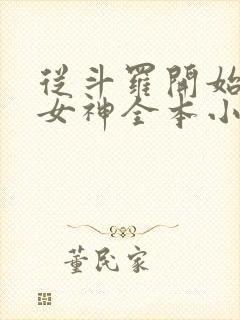 從斗羅開始
女神全本小
董民家